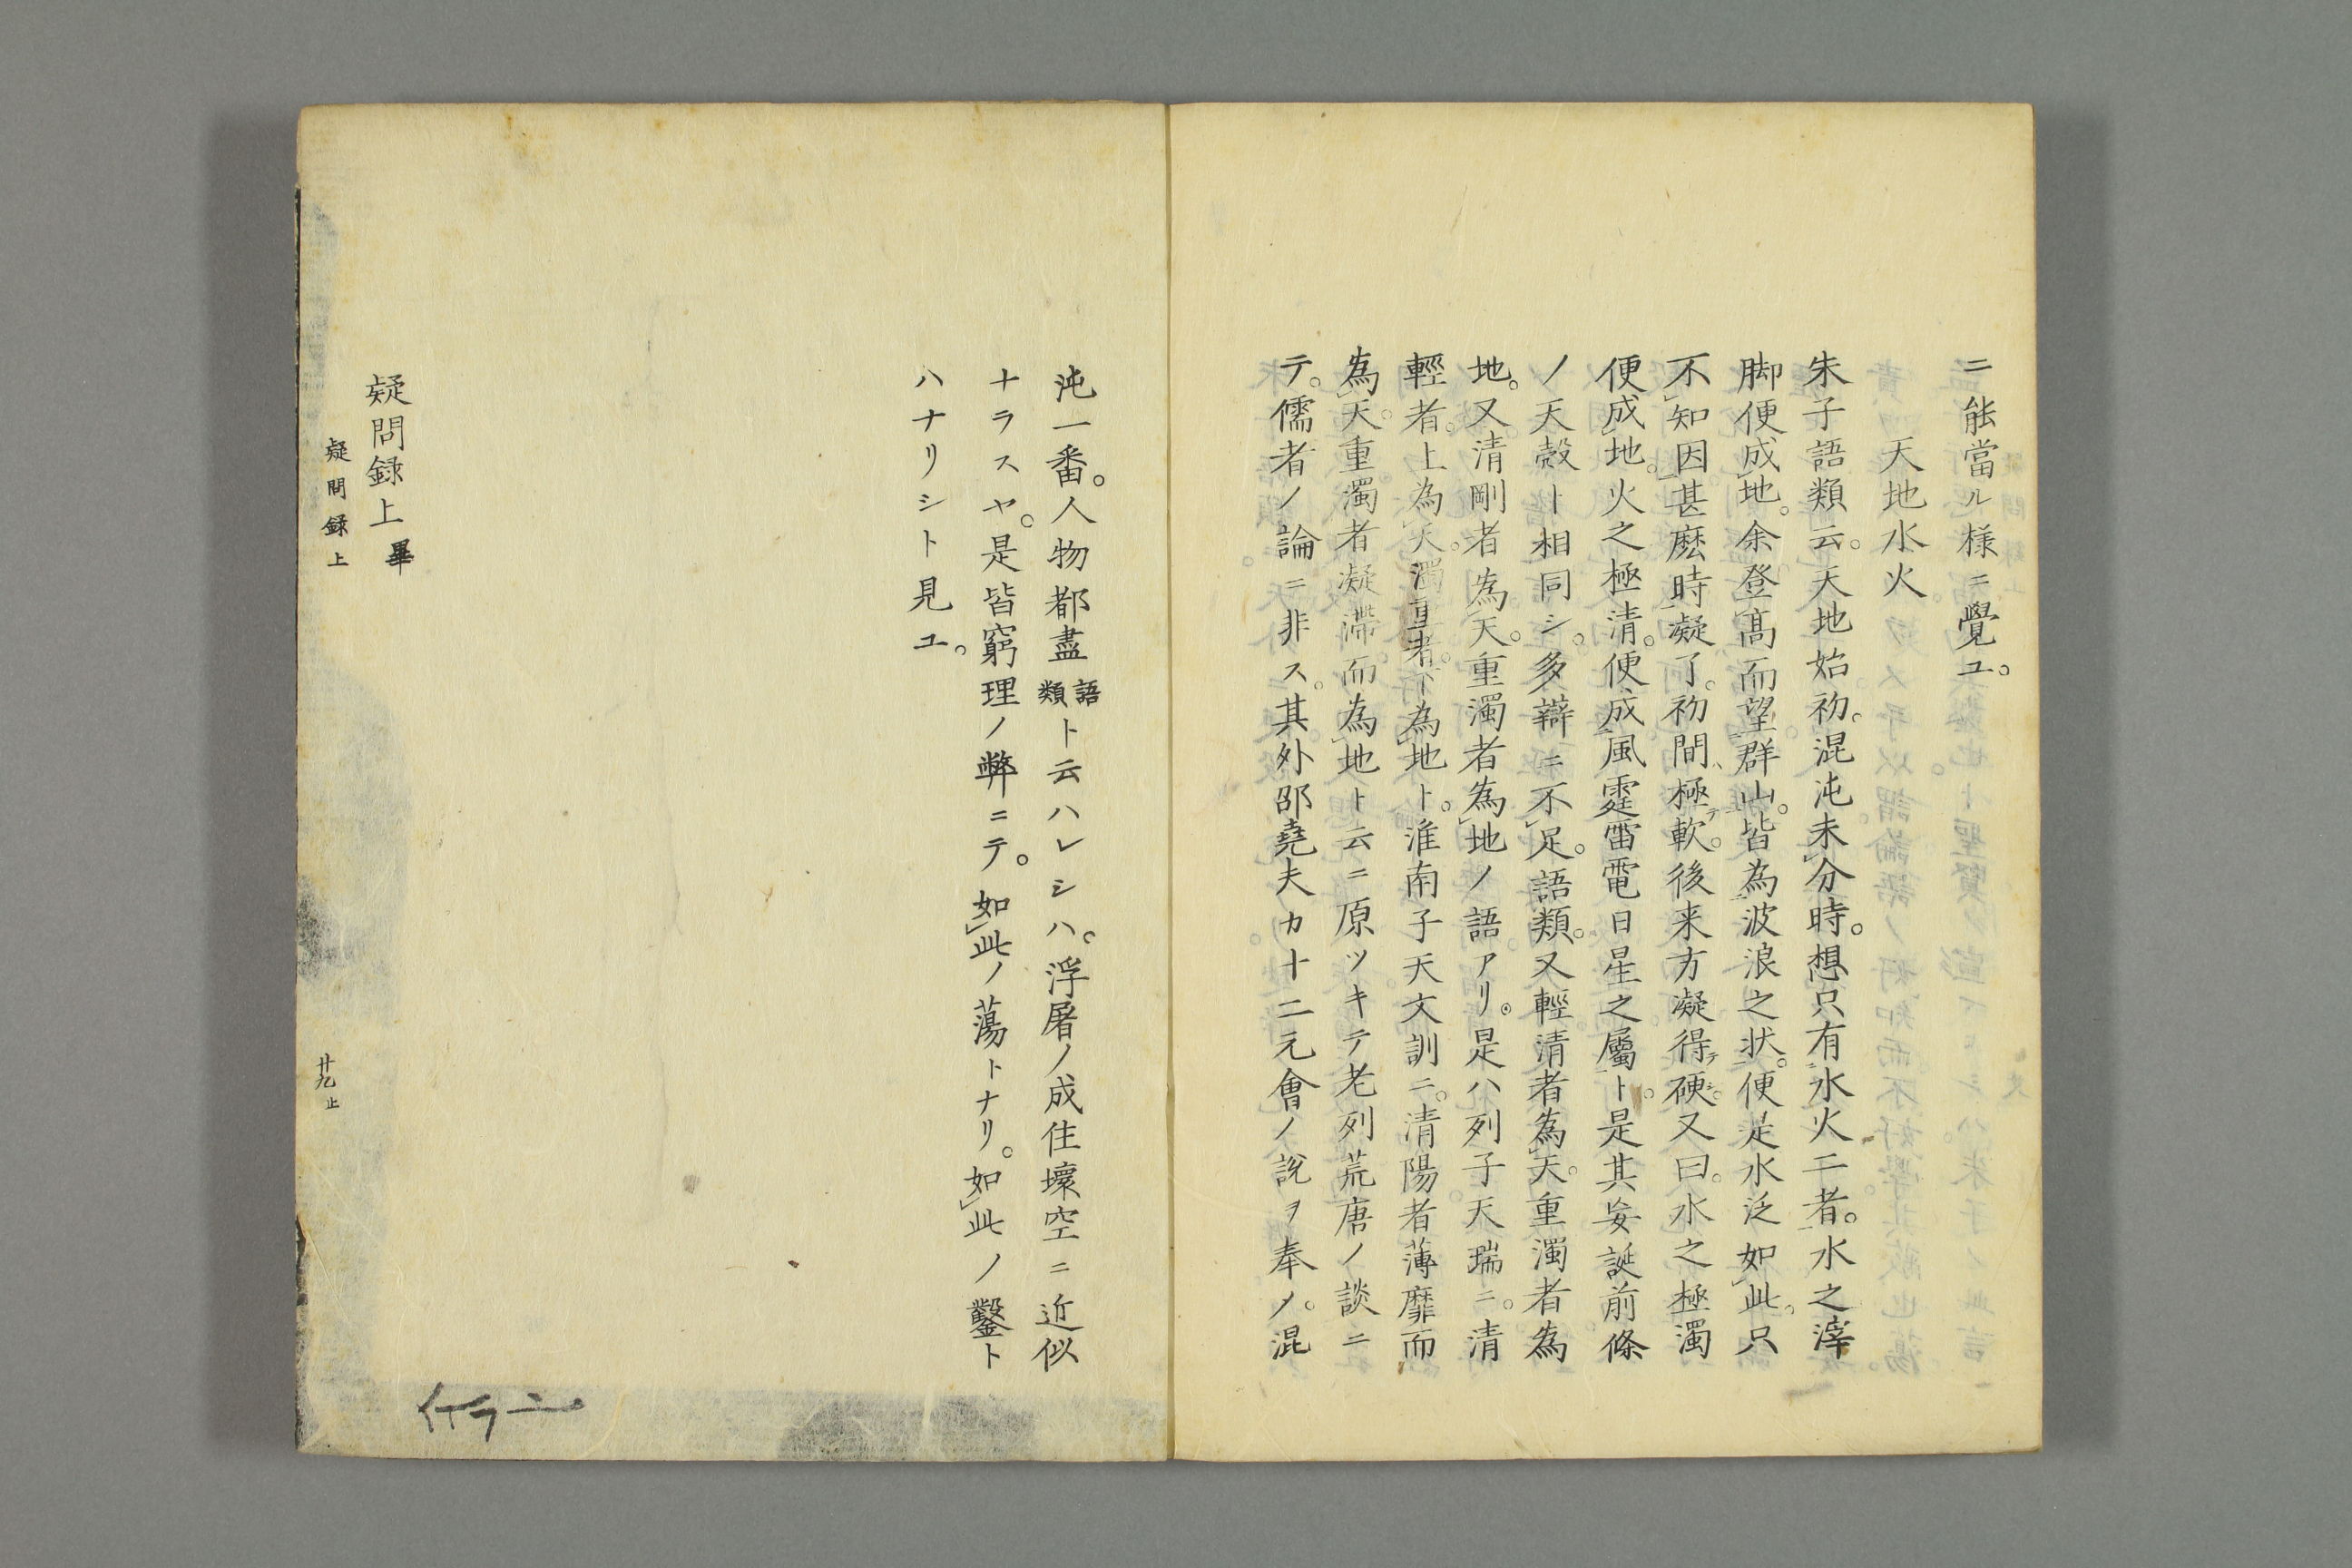 ニ能當ル様ニ覺ユ。
天地水火
朱子語類云。天地始初。混沌未分時。想只有水火二者。水之滓
脚便成地。余登高而望群山。皆為波浪之状。便是水泛如此。只
不知因甚麽時凝了。初間極軟。後来方凝得硬。又曰。水之極濁
便成地。火之極清。便成風霆雷電日星之屬ト。是其妄誕前條
ノ天殻ト相同シ。多辯ニ不足。語類。又輕清者為天。重濁者為
地。又清剛者為天。重濁者為地ノ語アリ。是ハ列子天瑞ニ。清
輕者。上為天。濁重者。下為地ト。淮南子天文訓ニ。清陽者薄靡而
為天。重濁者凝滯而為地ト云ニ原ツキテ老列荒唐ノ談ニ
テ。儒者ノ論ニ非ス。其外邵堯夫カ十二元會ノ說ヲ奉メ。混
沌一番。人物都盡語類ト云ハレシハ。浮屠ノ成住壞空ニ近似
ナラスヤ。是皆窮理ノ弊ニテ。如此ノ蕩トナリ。如此ノ鑿ト
ハナリシト見ユ。
疑問録上畢
疑問録上
廿九止